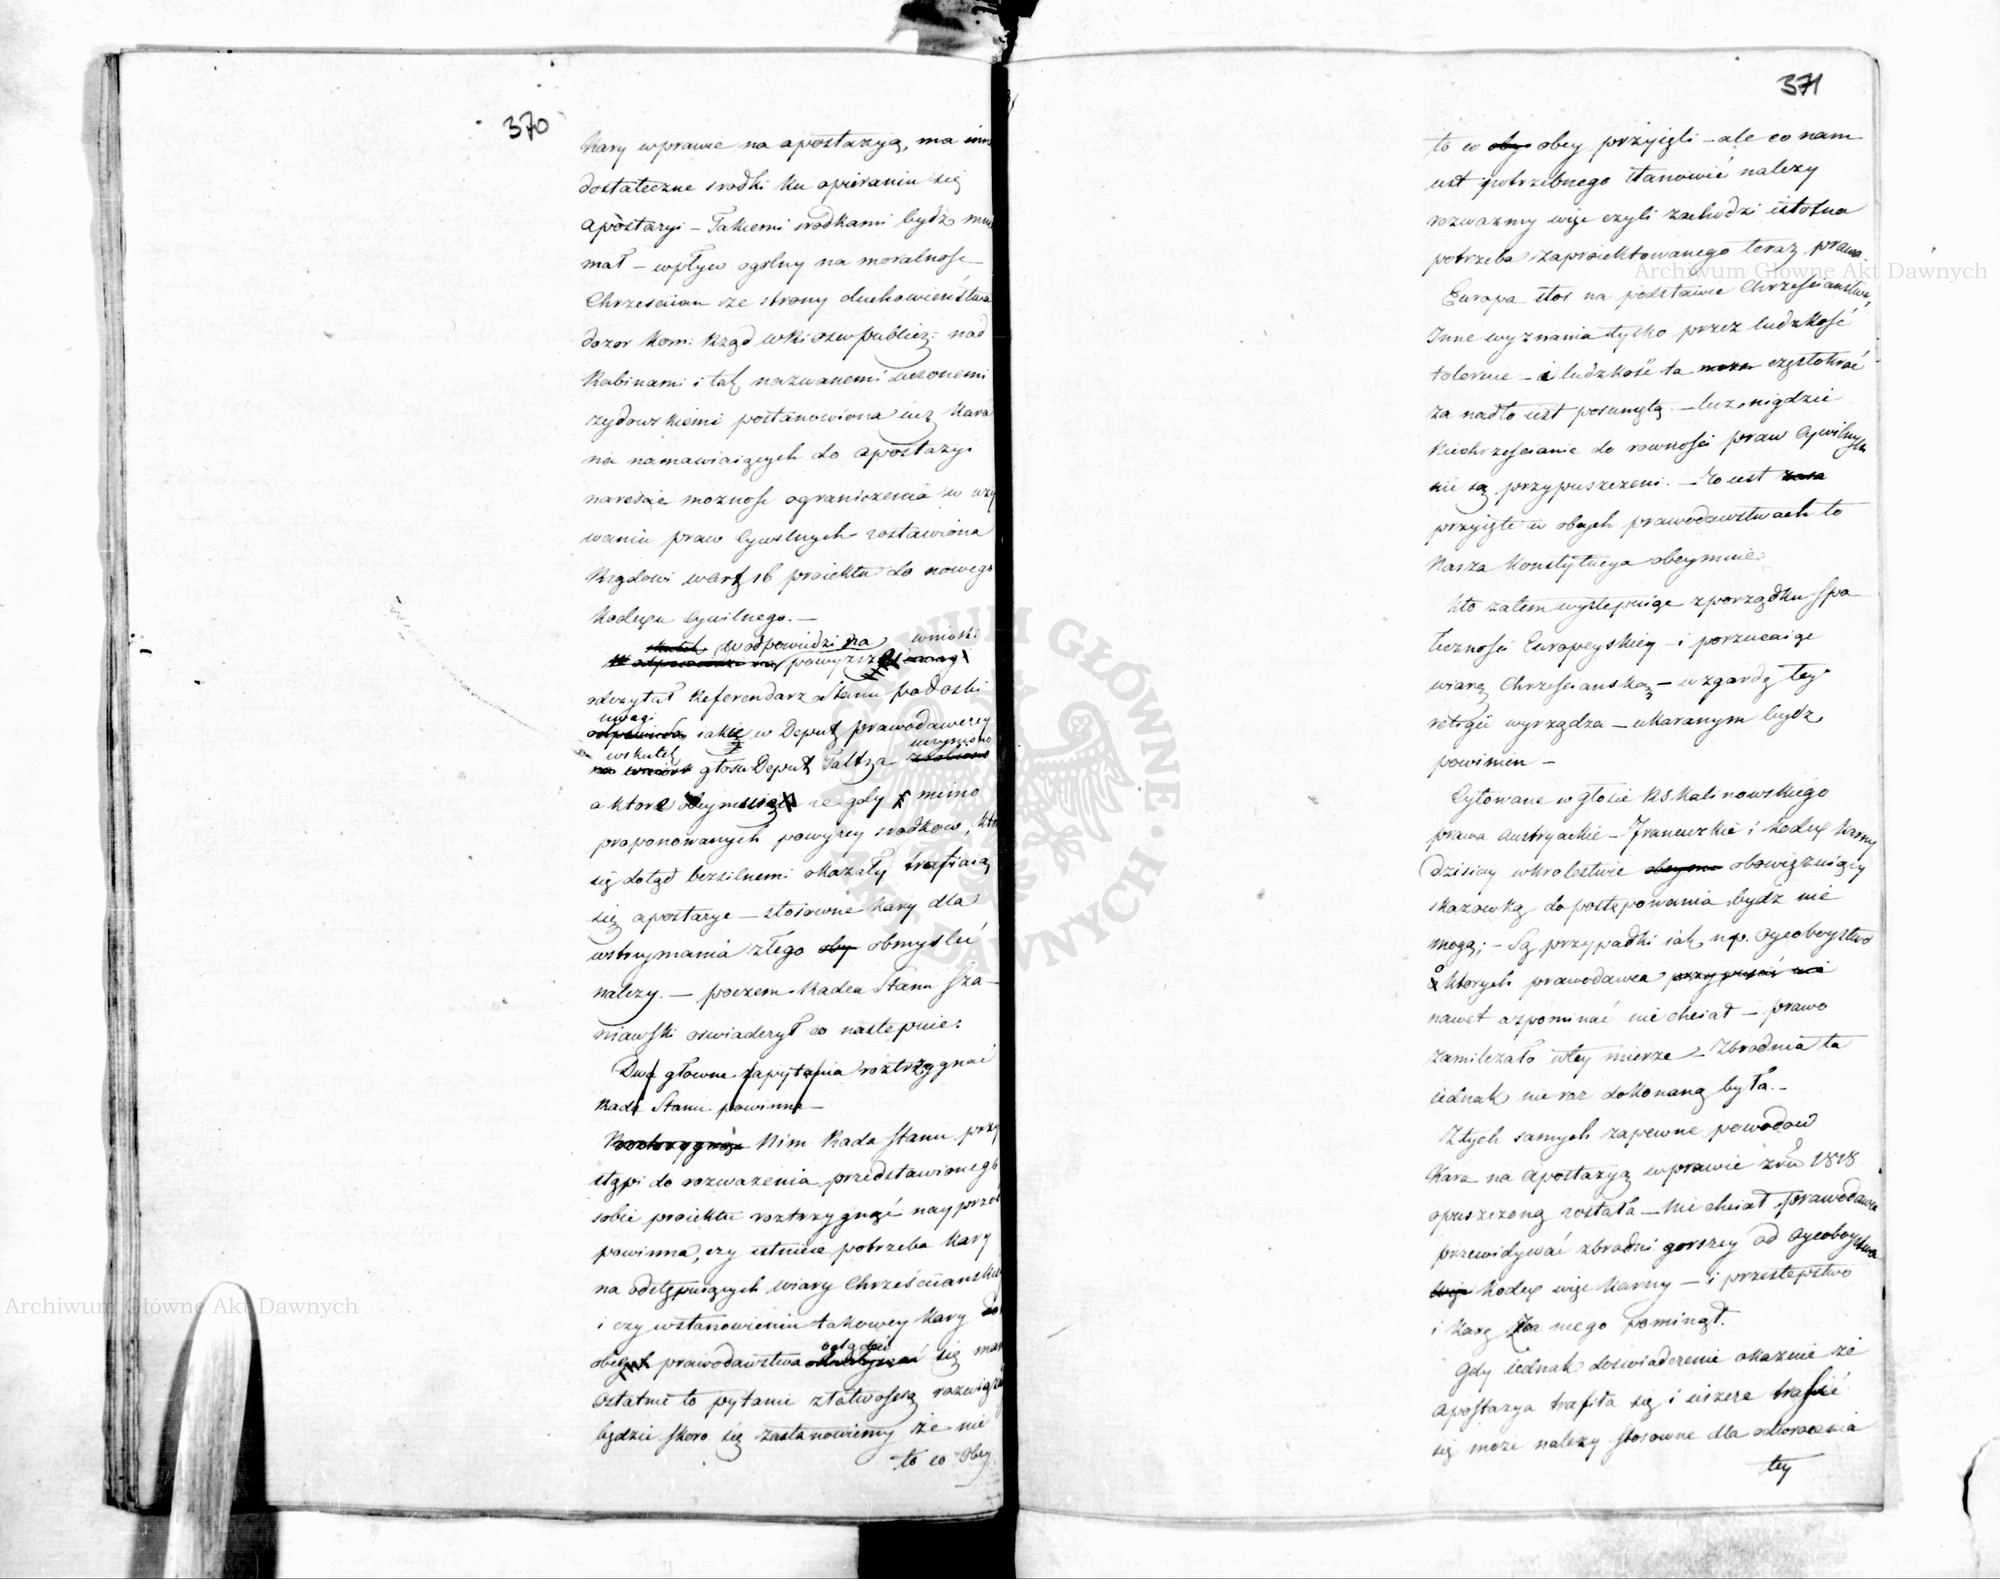 370
Kary wprawie na apostazyą, ma inne
dostateczne srodki ku opieraniu się
apostazyi – Takiemi srodkami bydz
mał – wpływ ogolny na moralnosc
Chrzescian ze strony duchowieństwa
dozor Kom: Rząd wRi Oswpublicz: nad
Rabinami i tak nazwanemi uczonemi
zydowskiemi postanowiona iuz Kara
na namawiaiących do apostazyi
nareście moznosc ograniczenia w uzy
waniu praw Cywilnych zostawiona
Rządowi wart 16 proiektu do nowego
Kodexu Cywilnego. –
wodpowiedzi na wnioski
powyzsze
odczytał Referendarz Stanu Podoski
uwagi
iakie w Deput prawodawczey
wskutek uczyniono
głosu Deput Taltza
a ktore obeymuią ze gdy mimo
proponowanych powyzey srodkow,
się dotąd bezsilnemi okazały trafiaią
się apostazye – stosowne Kary dla
wstrzymania złego oby obmyslić
nalezy. – poczem Radca Stanu Sza-
niawski oswiadczył co następuie:
Dwa głowne zapytania roztrzygnać
Rada Stanu powinna –
Roztrzygnąć Nim Rada Stanu przy
stąpi do rozwazenia przedstawionego
sobie proiektu roztrzygnąć nayprzod
powinna, czy istnieie potrzeba Kary
na odstępuiących wiary Chrześciianskiey
i czy wstanowieniu takowey Kary do
oglądać
obcych prawodawstwa się mamy
Ostatnie to pytanie złatwoscią rozwiąza
będzie skoro się zastanowiemy że nie
to co Obcy
371
to co oby obcy przyięli – ale co nam
iest potrzebnego stanowić nalezy
rozwazmy więc czyli zachodzi istotna
potrzeba zaproiektowanego teraz prawa.
Europa stoi na podstawie Chrześcianstwa,
Inne wyznania tylko przez ludzkość
toleruie – i ludzkość ta częstokroć
za nadto iest posuniętą. – lecz nigdzie
Niechrześcianie do rownosci praw Cywilnych
nie są przypuszczeni. – To iest
przyięte w obcych prawodawstwach to
Nasza Konstytucya obeymuie.
Kto zatem występuiąc zporządku spo
łeczności Europeyskiey – i porzucaiąc
wiarę Chrześcianską – wzgardę tey
religii wyrządza – ukaranym bydz
powinien –
Cytowane w głosie RS Kalinowskiego
prawa austryackie – Francuzkie i Kodex Karny
dzisiay wKrolestwie obowięzuiący
skazowką do postępowania bydz nie
mogą; – Są przypadki iak np. Oycoboystwo
o Ktorych prawodawca przypuśćic nie
nawet wspominać nie chciał – prawo
zamilczało wtey mierze – Zbrodnia ta
iednak nie raz dokonaną była. –
Ztych samych zapewne powodow
Kara na Apostazyą wprawie zru 1818
opuszczoną została – Nie chciał prawodawca
przewidywać zbrodni gorszey od Oycoboystwa
więc Kodex więc Karny – i przestępstwo
i Karę na niego pominął.
Gdy iednak doswiadczenie okazuie ze
Apostazya trafiła się i ieszcze trafić
się moze nalezy stosowne dla odwrocenia
tey
Archiwum Główne Akt Dawnych
Archiwum Główne Akt Dawnych
ARCHIWUM GŁÓWNE AKT DAWNYCH